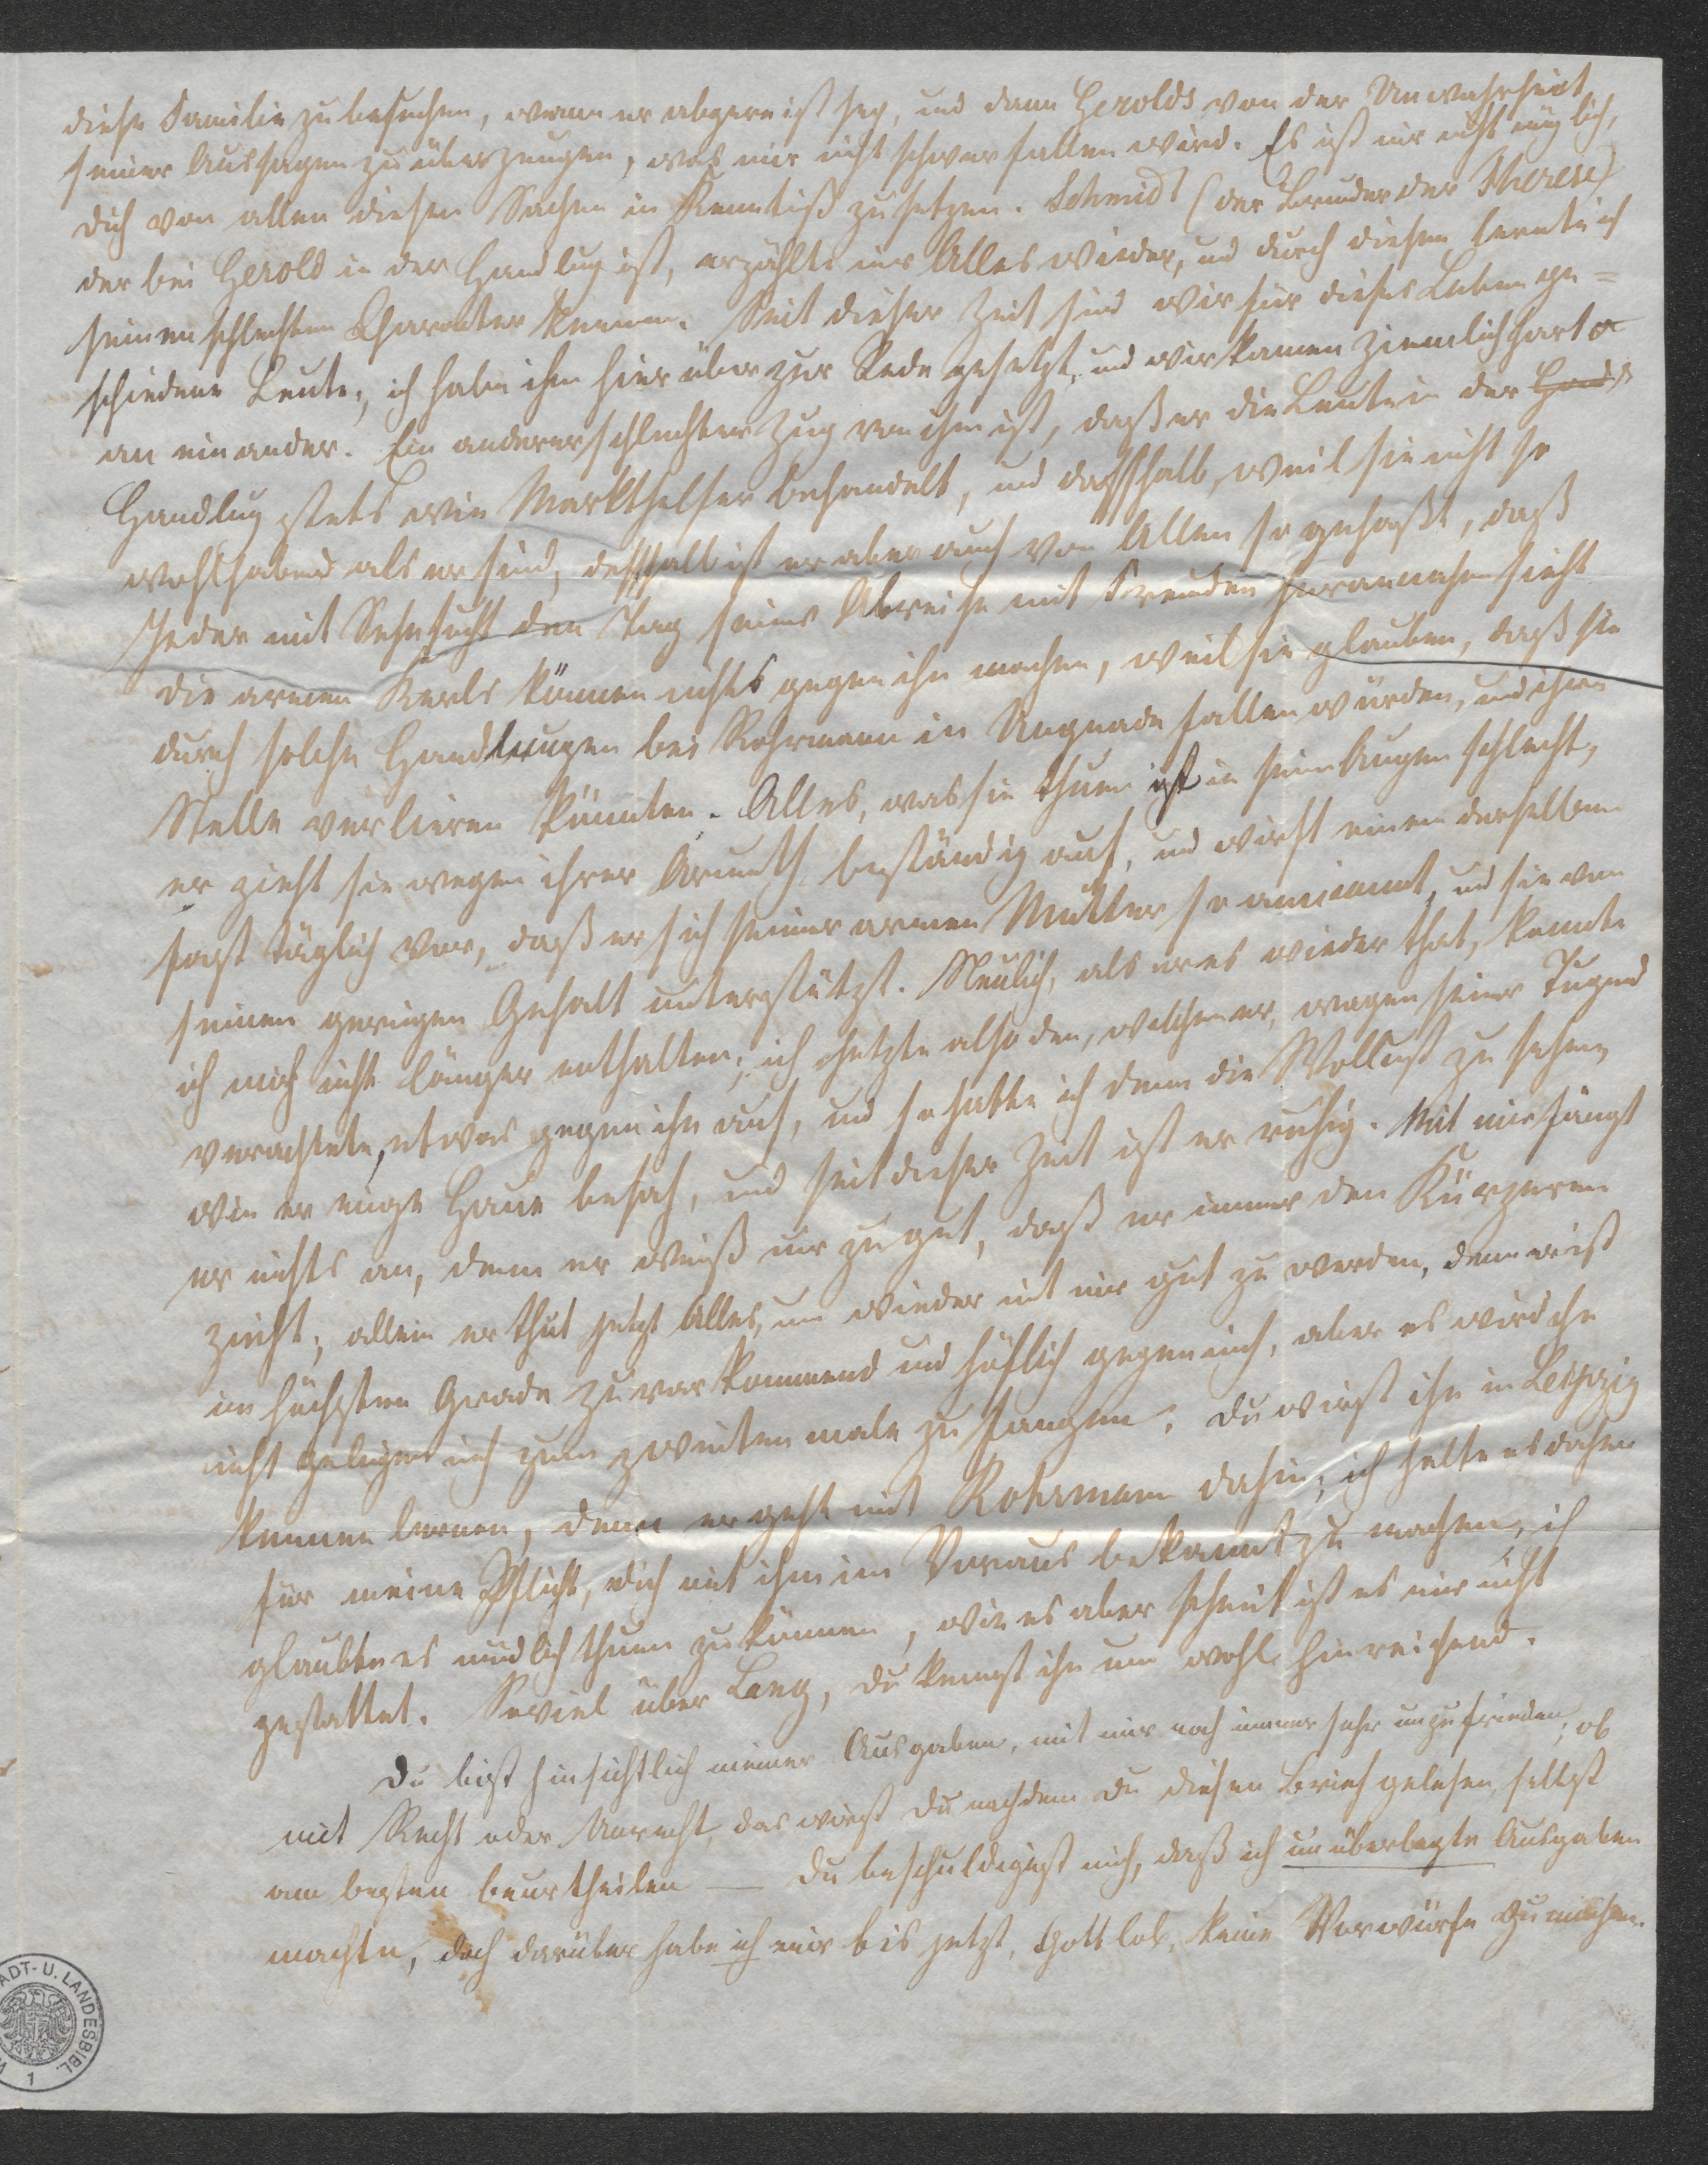 diese Familie zu besuchen, wenn er abgereist sey, und dann Herolds von der Unwahrheit
seiner Aussagen zu überzeugen, was mir nicht schwer fallen wird. Es ist mir nicht möglich,
Dich von allen diesen Sachen in Kenntniß zu setzen. Schmidt (der Bruder der Therese)
der bei Herold in der Handlug ist, erzählte mir Alles wieder, und durch diesen lernte ich
seinen schlechten Charakter kennen. Seit dieser Zeit sind wir für dieses Leben ge=
schiedene Leute, ich habe ihn hierüber zur Rede gesetzt, und wir kamen ziemlich hart
an einander. Ein anderer schlechter Zug von ihm ist, daß er die Leute in der
Handlug stets wie Markthelfer behandelt, und deßhalb, weil sie nicht so
wohlhabend als er sind, deßhalb ist er aber auch von Allen so gehaßt, daß
Jeder mit Sehnsucht den Tag seiner Abreise mit Freuden herannahen sieht
die armen Kerls können nichts gegen ihn machen, weil sie glauben, daß sie
durch solche Handlungen bei Rohrmann in Ungnade fallen würden, und ihre
Stelle verlieren könnten. Alles, was sie thuen ist in seinen Augen schlecht,
er zieht sie wegen ihrer Armuth beständig auf, und wirft einem derselben
fast täglich vor, daß er sich seiner armen Mutter so annimmt, und sie von
seinem geringen Gehalt unterstützt. Neulich, als er es wieder that, konnte
ich mich nicht länger enthalten; ich hetzte also den, welchen er, wegen seiner Tugend
verachtete, etwas gegen ihn auf, und so hatte ich denn die Wollust zu sehen,
wie er einige Haue besah, und seit dieser Zeit ist er ruhig. Mit mir fängt
er nichts an, denn er weiß nur zu gut, daß er immer den Kürzeren
zieht; allein er thut jetzt Alles, um wieder mit mir gut zu werden, denn er ist
im höchsten Grade zuvorkommend und höflich gegen mich, aber es wird ihm
nicht gelingen mich zum zweiten male zu fangen. Du wirst ihn in Leipzig
kennen lernen, denn er geht mit Rohrmann dahin; ich halte es daher
für meine Pflicht, dich mit ihm im Voraus bekannt zu machen, ich
glaubte es mündlich thuen zu können, wie es aber scheint ist es mir nicht
gestattet. Soviel über Lang, du kennst ihn nun wohl hinreichend.
Du bist hinsichtlich meiner Ausgaben, mit mir noch immer sehr unzufrieden; ob
mit Recht oder Unrecht, das wirst Du nachdem Du diesen Brief gelesen, selbst
am besten beurtheilen — Du beschuldigst mich, daß ich unüberlegte Ausgaben
machte, doch darüber habe ich mir bis jetzt, Gottlob, keine Vorwürfe zu machen.
ADT- U. LANDESBIBL.
1